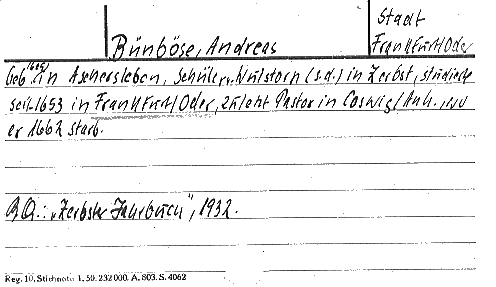 Stadt
Bünböse, Andreas Frankfurt/Oder
geb. 1629 in Aschersleben, Schüler v. Wulstorp (s.d.) in Zerbst, studierte
seit 1653 in Frankfurt/Oder, zuletzt Pastor in Coswig/Anh., wo
er 1662 starb.
BQ.: „Zerbster Jahrbuch", 1932.
Reg. 10. Stichnote 1. 50. 232000. A. 803. S. 4062